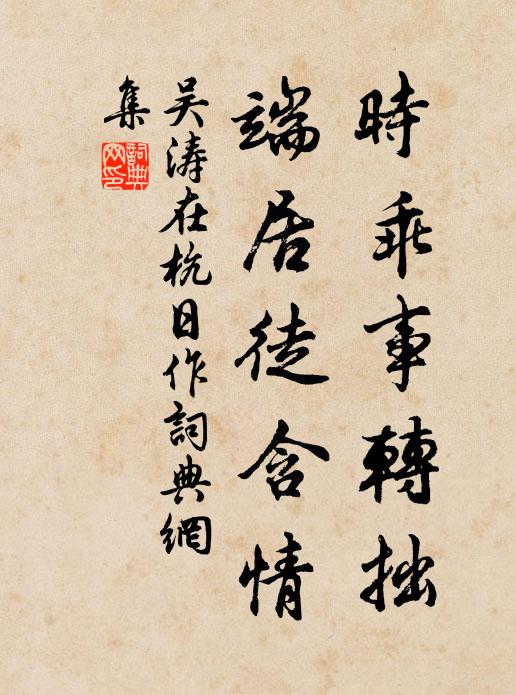 時乖事轉拙
端居徒含情
吴涛在杭日作詞典網
集
詞典網印